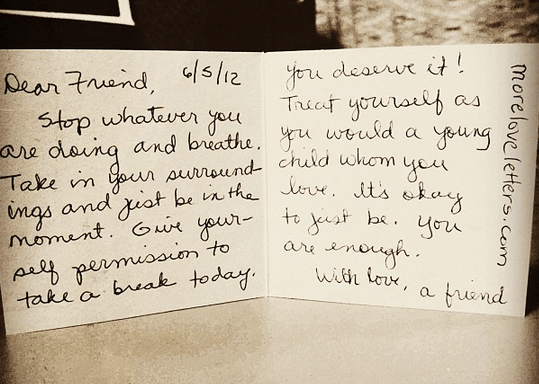 Dear Friend, 6/5/12
Stop whatever you
are doing and breathe.
Take in your surround-
ings and just be in the
moment. Give your-
self permission to
take a break today.
You deserve it!
Treat yourself as
you would a young
child whom you
love. It's okay
to just be. You
are enough.
With love, a friend
moreloveletters.com